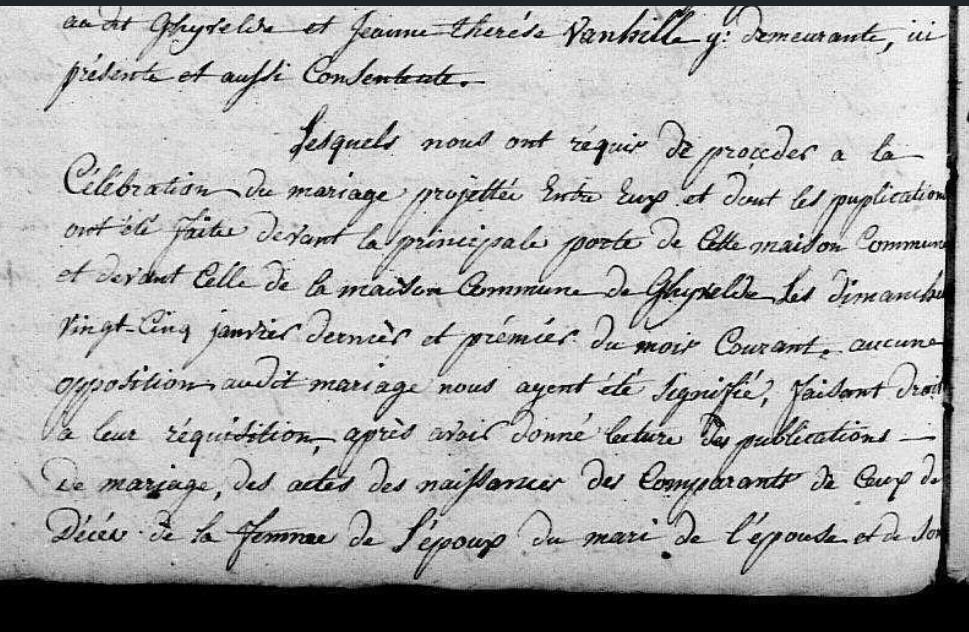 audit Ghyvelde et Jeanne therése Vanhille y: demeurante, ici
présente et aussi Consentente.
Lesquels nous ont réquis de procéder a la
Célébration du mariage projettée Entre Eux et dont les puplication
ont été faite devant la principale porte de Cette maison Commune
et devant Celle de la maison Commune de Ghyvelde Les dimanche
vingt-Cinq janvier dernier et prémier du mois Courant, aucune
opposition audit mariage nous ayent été Signifié, faisant droit
a leur réquisition, après avoir donné lecture des publications
de mariage, des actes des naissances des Comparants de Ceux de
Décés de la femme de L'époux du mari de l'épouse et de son